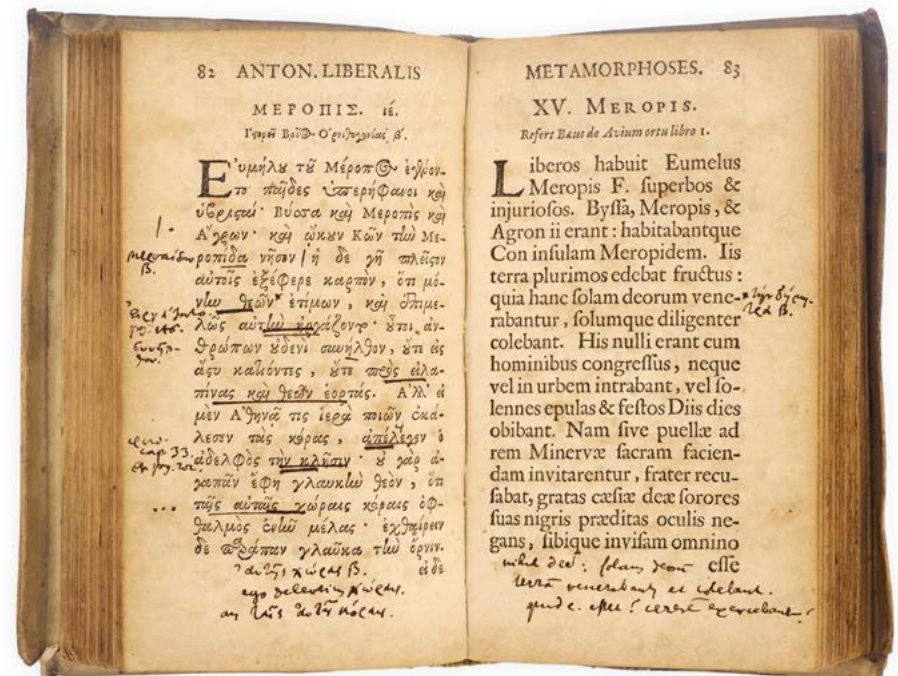 82 ANTON. LIBERALIS
ΜΕΡΟΠΙΣ. ιέ.
Ἱστορεῖ Βοῖος Ὀρνιθογονίας β΄.
Εὐμήλου τοῦ Μέροπος ἐγένον-
το παῖδες ὑπερήφανοι καὶ
ὑβρισταί· Βύσσα καὶ Μεροπὶς καὶ
Ἄγρων· καὶ ᾤκουν Κῶν τὴν Με-
ροπίδα νῆσον· ἡ δὲ γῆ πλεῖστον
αὐτοῖς ἐξέφερε καρπὸν, ὅτι μό-
νην θεῶν ἐτίμων, καὶ ἐπιμε-
λῶς αὐτὴν εἰργάζοντο· οὗτοι ἀν-
θρώπων οὐδενὶ συνήλθον, οὔτε εἰς
ἄστυ κατιόντες, οὔτε πρὸς εἰλα-
πίνας καὶ θεῶν ἑορτάς. Ἀλλ' εἰ
μὲν Ἀθηνᾷ τις ἱερὰ ποιῶν ἐκά-
λεσεν τὰς κόρας, ἀπέλεγεν ὁ
ἀδελφὸς τὴν κλῆσιν· οὐ γὰρ ἀ-
γαπᾶν ἔφη γλαυκὴν θεὸν, ὅτι
ταῖς αὐταῖς χώραις κόραις ὀφ-
θαλμὸς ἐνῆν μέλας· ἐχθαίρειν
δὲ γλαῦκα τὴν ὄρνιν.
εἰ δὲ
αὐτῆς χώρας β.
ego delevissem χώραις.
an ταῖς αὐτῆς κόραις.
METAMORPHOSES. 83
XV. MEROPIS.
Refert Bæus de Avium ortu libro 1.
Liberos habuit Eumelus
Meropis F. superbos &
injuriosos. Byssa, Meropis, &
Agron ii erant: habitabantque
Con insulam Meropidem. Iis
terra plurimos edebat fructus:
quia hanc solam deorum vene-
rabantur, solumque diligenter
colebant. His nulli erant cum
hominibus congressus, neque
vel in urbem intrabant, vel so-
lennes epulas & festos Diis dies
obibant. Nam sive puellæ ad
rem Minervæ sacram facien-
dam invitarentur, frater recu-
sabat, gratas cæsiæ deæ sorores
suas nigris præditas oculis ne-
gans, sibique invisam omnino
esse
solam deam
terram venerabantur et colebant.